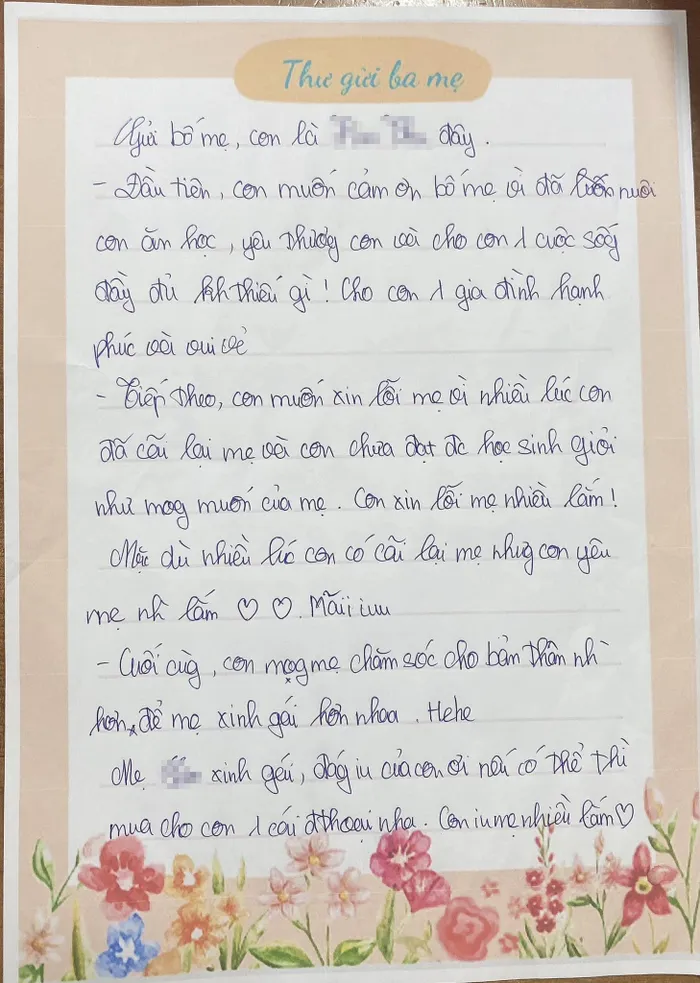 Thư gửi ba mẹ
Gửi bố mẹ, con là đây.
- Đầu tiên, con muốn cảm ơn bố mẹ vì đã nuôi
con ăn học, yêu thương con và cho con 1 cuộc sốg
đầy đủ kh thiếu gì! Cho con 1 gia đình hạnh
phúc và vui vẻ
- Tiếp theo, con muốn xin lỗi mẹ vì nhiều lúc con
đã cãi lại mẹ và con chưa đạt đc học sinh giỏi
như mog muốn của mẹ. Con xin lỗi mẹ nhiều lắm!
Mặc dù nhiều lúc con có cãi lại mẹ nhưg con yêu
mẹ nh` lắm ♡ ♡. Mãii iuu
- Cuối cùg, con mog mẹ chăm sóc cho bản thân nh`
hơn, để mẹ xinh gái hơn nhaa. Hehe
Mẹ xinh gếi, đág iu của con ơi nếu có thể thì
mua cho con 1 cái đthoại nha. Con iu mẹ nhiều lắm ♡